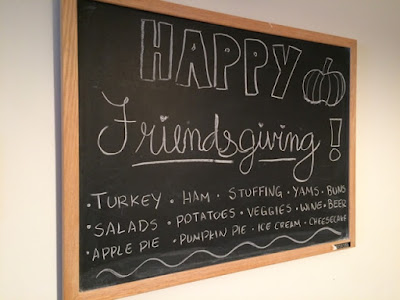 HAPPY
Friendsgiving!
· TURKEY · HAM · STUFFING · YAMS · BUNS
· SALADS · POTATOES · VEGGIES · WINE · BEER
· APPLE PIE · PUMPKIN PIE · ICE CREAM · CHEESECAKE